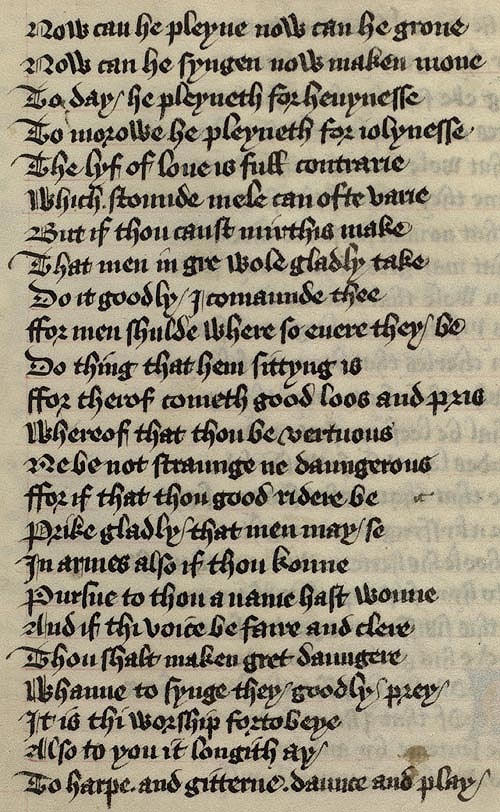 Now can he pleyne now can he grone
Now can he syngen now maken mone
To day/ he pleyneth for heuynesse
To morowe he pleyneth for iolynesse
The lyf of loue is full contrarie
Which stounde mele can ofte varie
But if thou canst mirthis make
That men in gre wole gladly take
Do it goodly/ I comaunde thee
ffor men shulde where so euere they/ be
Do thing that hem sittyng is
ffor therof cometh good loos and pris
Whereof that thou be vertuous
Ne be not straunge ne daungerous
ffor if that thou good ridere be
Prike gladly/ that men may/ se
In armes also if thou konne
Pursue to thou a name hast wonne
And if thi voice be faire and clere
Thou shalt maken gret daungere
Whanne to synge they/ goodly/ prey/
It is thi worship fortobeye
Also to you it longith ay/
To harpe. and gitterne. daunce and play/